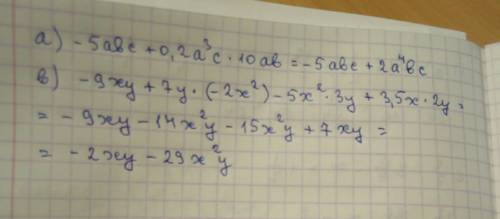 а) -5abc + 0,2a³c · 10ab = -5abc + 2a⁴bc
в) -9xy + 7y · (-2x²) - 5x² · 3y + 3,5x · 2y =
= -9xy - 14x²y - 15x²y + 7xy =
= -2xy - 29x²y